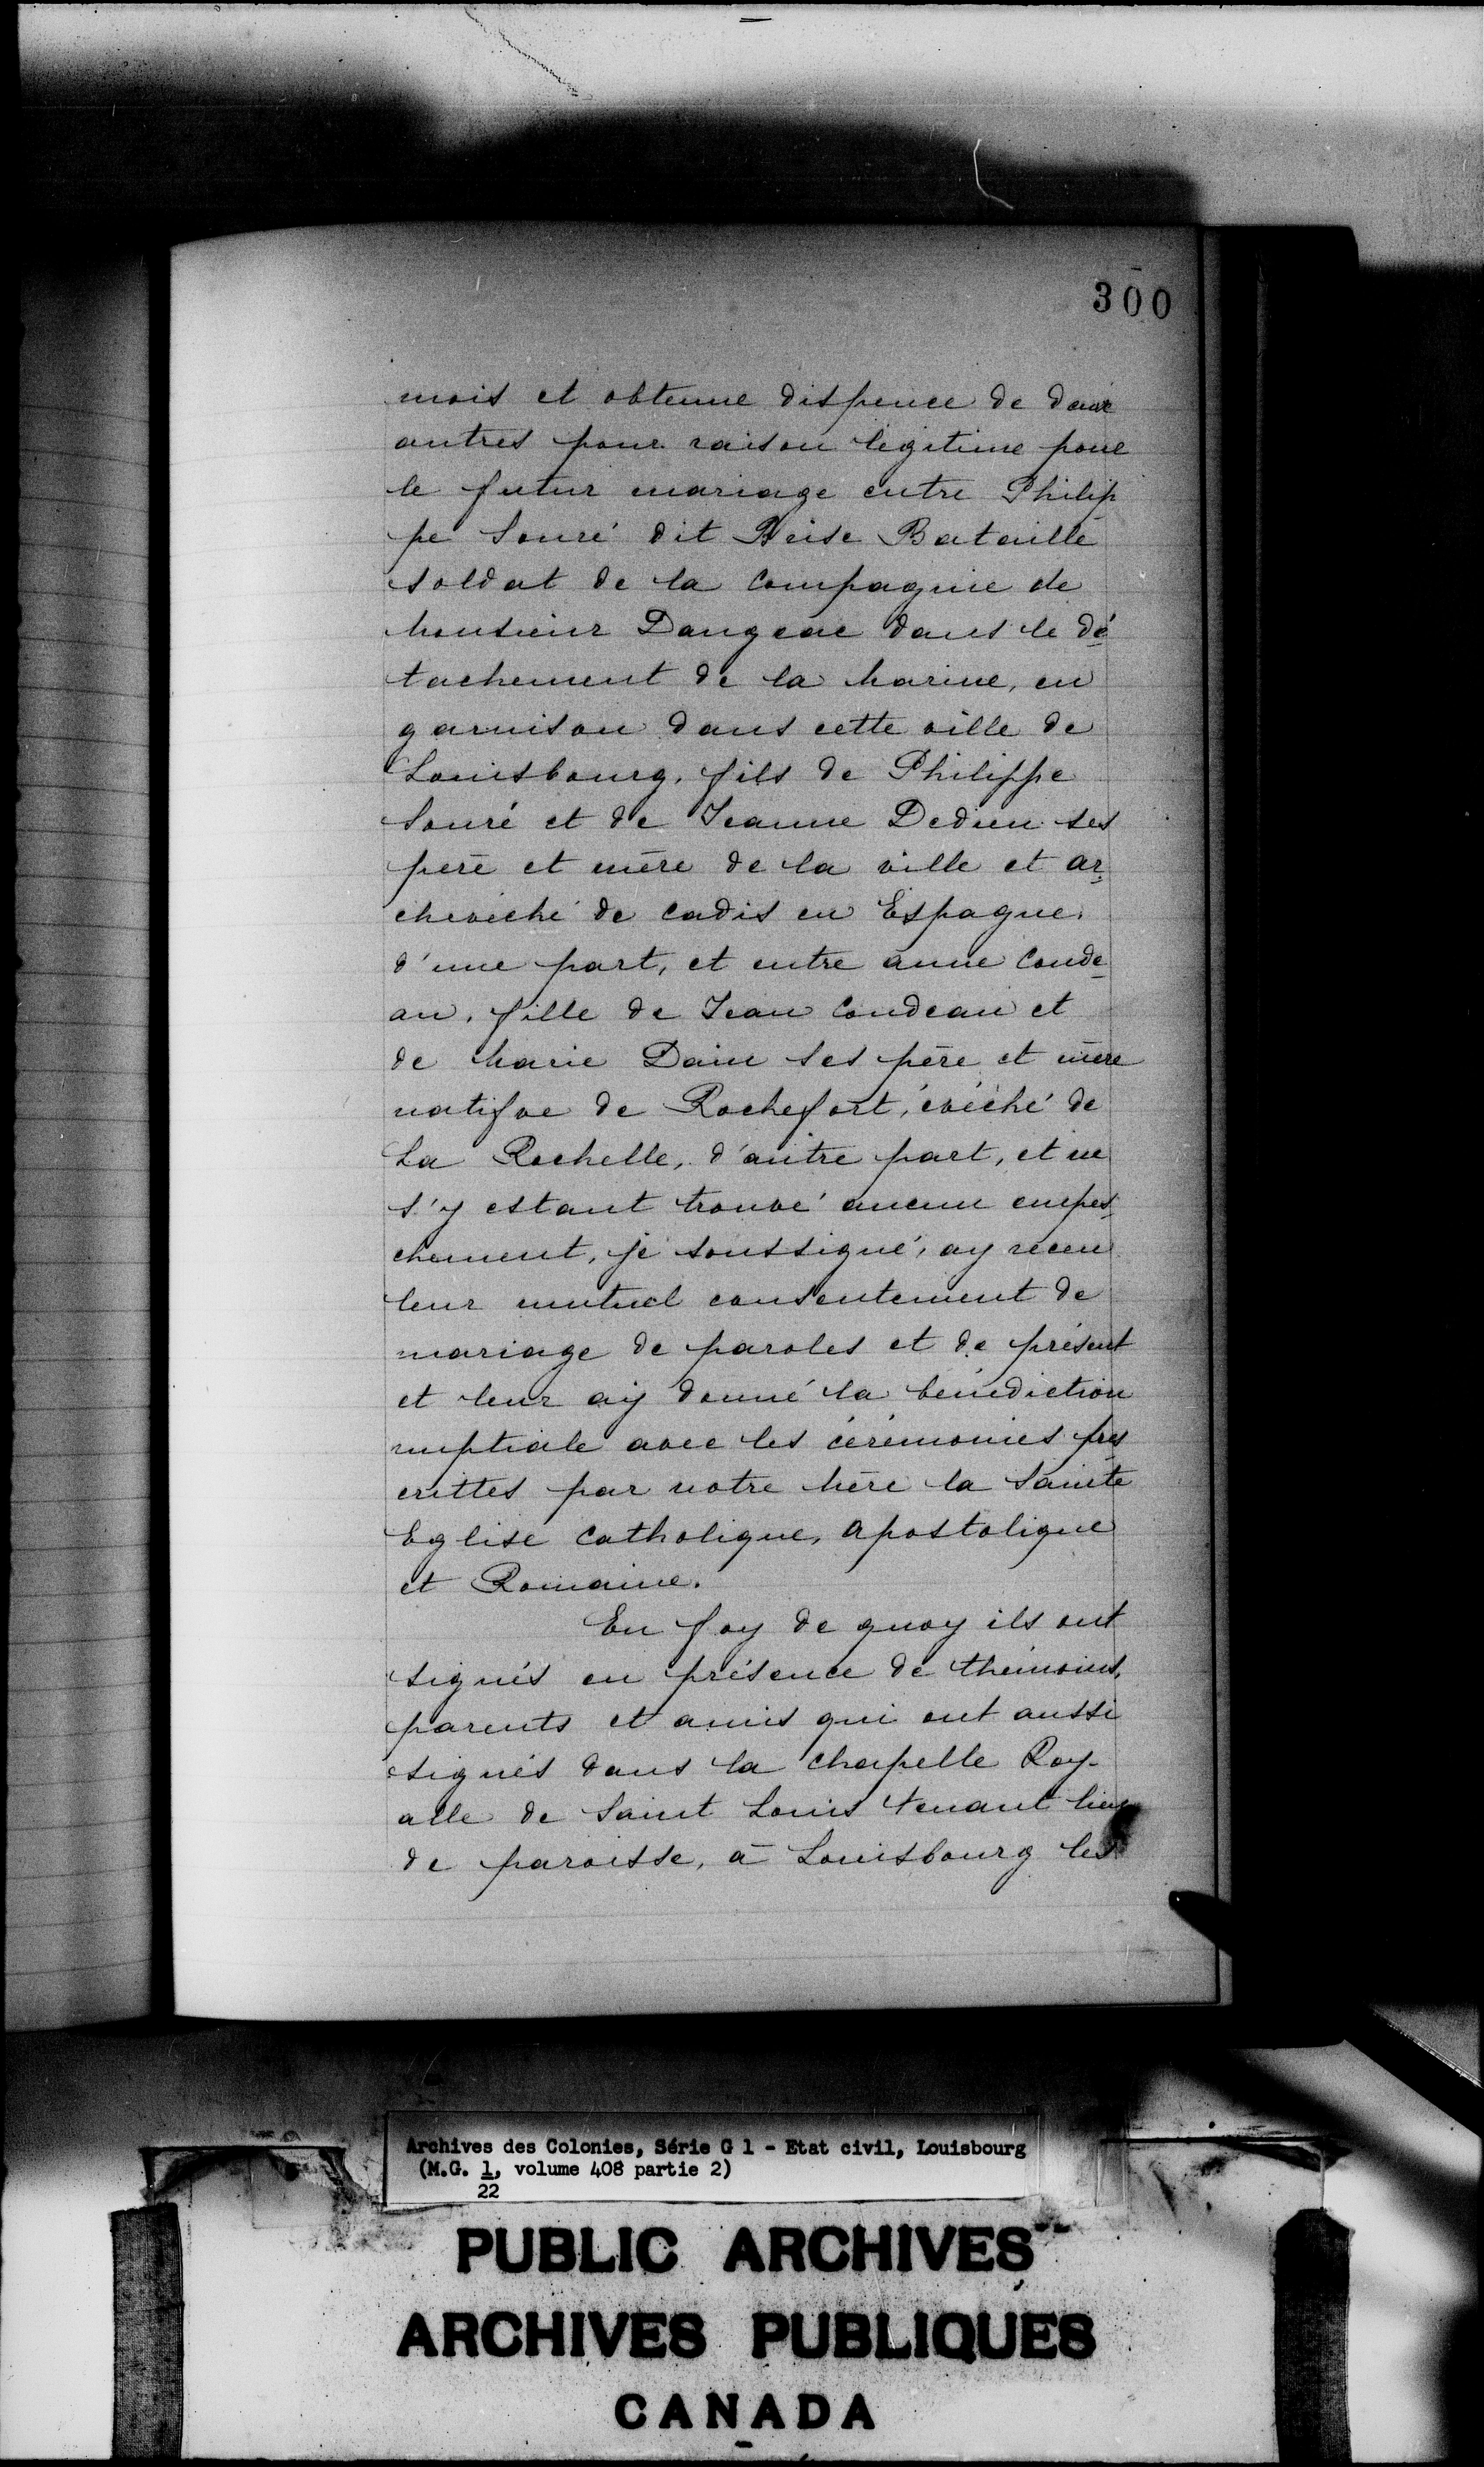 300
mois et obtenue dispence de deux
autres pour raison légitime pour
le futur mariage entre Philip
pe Souré dit Brise Bataille
soldat de la Compagnie de
Monsieur Dangeac dans le dé
tachement de la Marine, en
garnison dans cette ville de
Louisbourg, fils de Philippe
Souré et de Jeanne Dedieu ses
père et mère de la ville et ar-
chevêché de Cadis en Espagne,
d'une part, et entre anne Conde-
au, fille de Jean Condeau et
de Marie Dain ses père et mère
natifve de Rochefort, évêché de
La Rochelle, d'autre part, et ne
s'y estant trouvé aucun empes-
chement, je soussigné, ay receu
leur mutuel consentement de
mariage de paroles et de présent
et leur ay donné la bénédiction
nuptiale avec les cérémonies pres
crittes par notre Mère la Sainte
Eglise Catholique, Apostolique
et Romaine.
En foy de quoy ils ont
signés en présence de thémoins,
parents et amis qui ont aussi
signés dans la chapelle Roy-
alle de Saint Louis tenant lieu
de paroisse, à Louisbourg les
Archives des Colonies, Série G 1 - Etat civil, Louisbourg
(M.G. 1, volume 408 partie 2)
22
PUBLIC ARCHIVES
ARCHIVES PUBLIQUES
CANADA